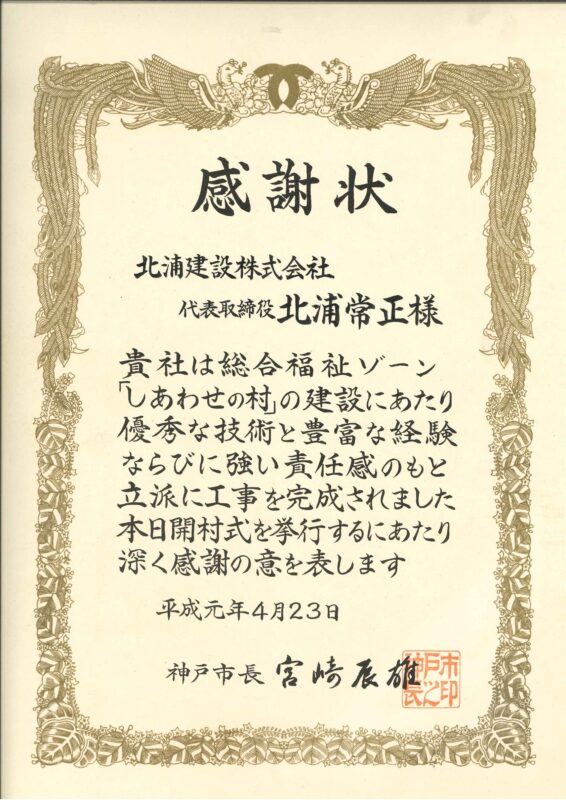 感謝状
北浦建設株式会社
代表取締役 北浦常正様
貴社は総合福祉ゾーン
「しあわせの村」の建設にあたり
優秀な技術と豊富な経験
ならびに強い責任感のもと
立派に工事を完成されました
本日開村式を挙行するにあたり
深く感謝の意を表します
平成元年4月23日
神戸市長 宮崎辰雄
神戸市長之印